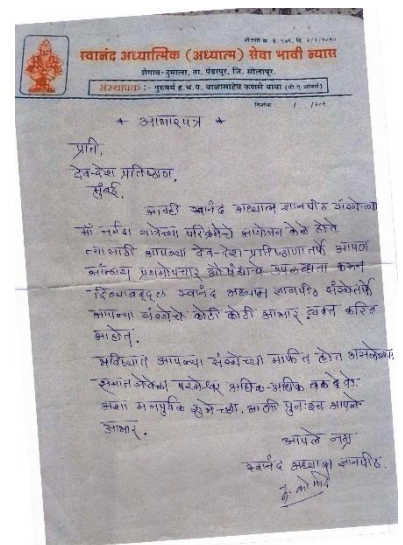 स्वानंद अध्यात्मिक (अध्यात्म) सेवा भावी न्यास
शेगाव-दुमाला, ता. पंढरपूर, जि. सोलापूर.
संस्थापक :- गुरुवर्य ह.भ.प. बाळासाहेब बाबा
दिनांक / / २०१
* आभारपत्र *
प्रति,
देव-देश प्रतिष्ठान,
मुंबई.
आम्ही स्वानंद अध्यात्म ज्ञानपीठ संस्थेच्या
माँ नर्मदा परिक्रमेचे आयोजन केले होते
त्यासाठी आपल्या देव-देश प्रतिष्ठाणतर्फे आपण
आम्हाला प्रथमोपचार औषधांची उपलब्धता करून
दिल्याबद्दल स्वानंद अध्यात्म ज्ञानपीठ संस्थेतर्फे
आपल्या संस्थेचे कोटी कोटी आभार व्यक्त करित
आहोत.
भविष्यात आपल्या संस्थेच्या मार्फत होत असलेल्या
समाजसेवेला परमेश्वर अधिक-अधिक बळ देवो.
अशा मनपूर्वक शुभेच्छा, आणि पुनःश्च आपले
आभार.
आपले नम्र
स्वानंद अध्यात्म ज्ञानपीठ.